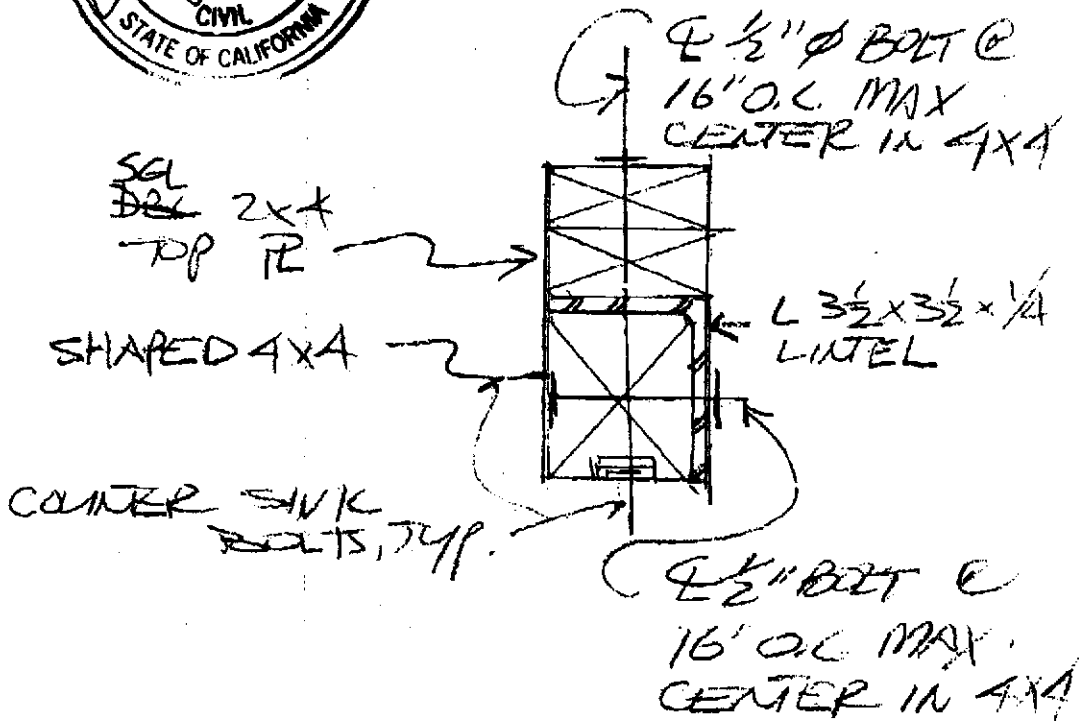 CIVIL
STATE OF CALIFORNIA
℄ ½"ø BOLT @
16"O.C. MAX
CENTER IN 4X4
SGL
DBL 2x4
TOP PL
L 3½x3½x¼
LINTEL
SHAPED 4X4
COUNTER SINK
BOLTS, TYP.
℄ ½" BOLT @
16' O.C MAX.
CENTER IN 4X4